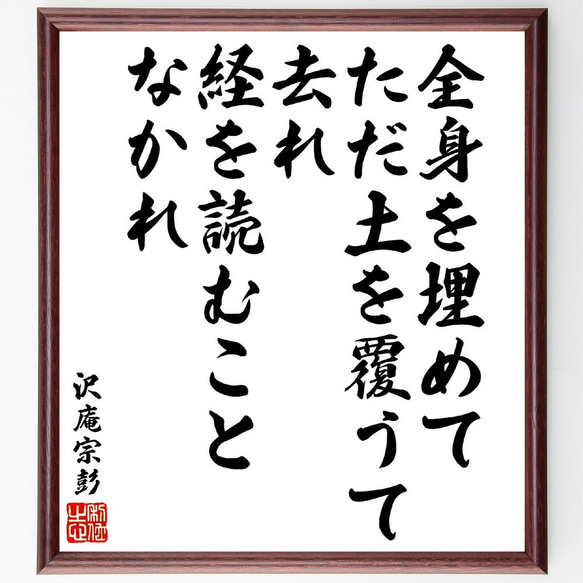 全身を埋めて
ただ土を覆うて
去れ
経を読むこと
なかれ
沢庵宗彭